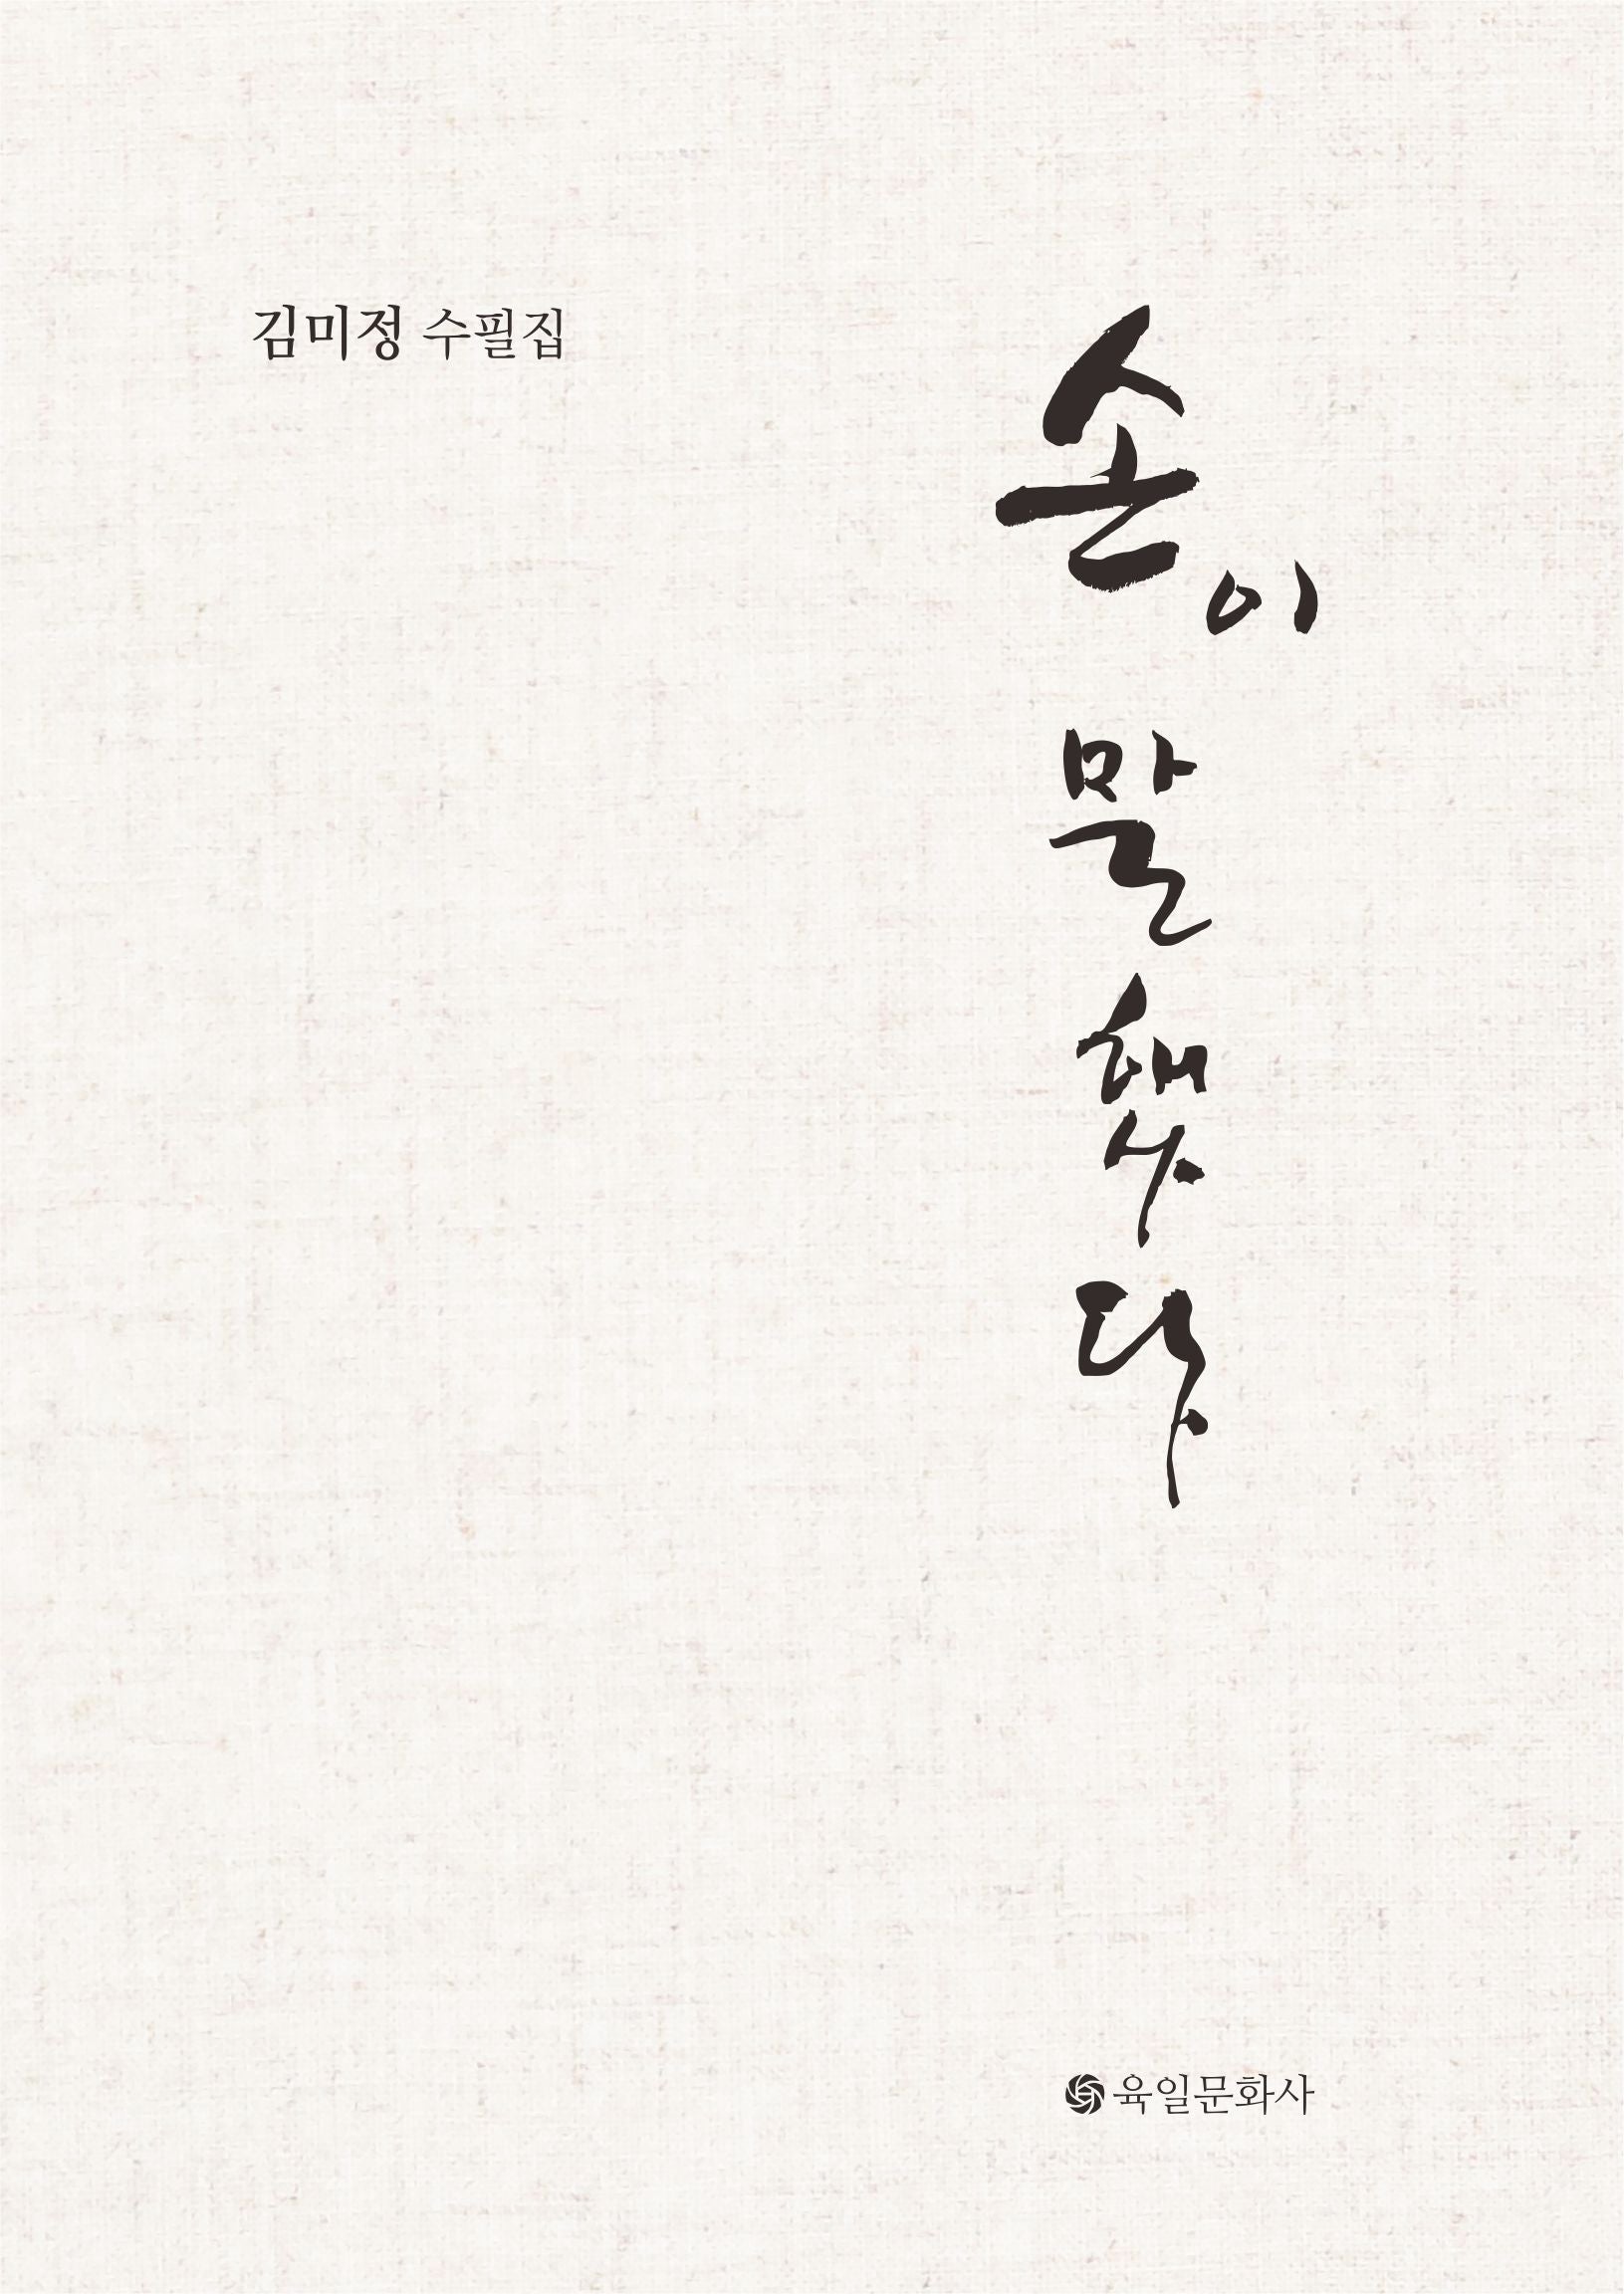 김미정 수필집
손이
말
했
다
육일문화사